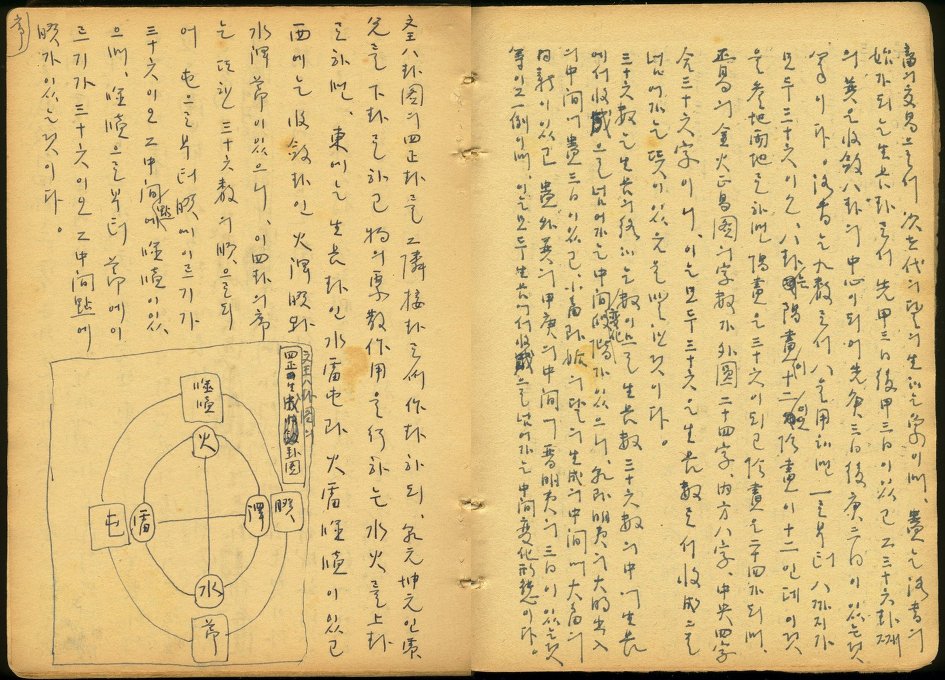 畜의 交易으로써 次三代의 달의 生하는 象이며, 蠱는 洛書의
始가 되는 生長卦로써 先甲三日 後甲三日이 있고 그 三十六卦째
의 巽은 收斂八卦의 中心이 되어 先庚三日 後庚三日이 있는것
이다. 洛書는 九數로써 八을 用하면 一로부터 八까지가
모두 三十六이오, 八卦는 陽畫이 十二이오 陰畫이 十二인데 이것
을 參地兩地로 하면 陽畫은 三十六이 되고 陰畫은 二十四가 되며,
正易의 金火正易圖의 字數가 外圓 二十四字, 內方 八字, 中央 四字
合三十六字이니, 이는 모두 三十六은 生長數로서 收成으로
넘어가는 뜻이 있음을 말한것이다.
三十六數는 生長의 終하는 數이므로 生長數 三十六數의 中에 生長
에서 收成으로 넘어가는 中間變化가 있으니, 곧 明夷의 大明出入
의 中間에 蠱三日이 있고, 小畜과 姤의 달의 生成의 中間에 大畜의
日新이 있고 蠱와 巽의 甲庚의 中間에 晋明夷의 三日이 있는것
等이 그 一例이며, 이는 모두 生長에서 收成으로 넘어가는 中間變化形態이다.
文王八卦圖의 四正卦를 그 隣接卦로써 作卦하되, 乾元坤元인 震
兌를 下卦로 하고 物의 作用을 行하는 水火를 上卦
로 하면, 東에는 生長卦인 水雷屯과 火雷噬嗑이 있고
西에는 收斂卦인 火澤睽와
水澤節이 있으니, 이 四卦의 序
는 또한 三十六數의 順으로 되
어 屯으로부터 睽에 이르기가
三十六이오 그 中間點에 噬嗑이 있
으며, 噬嗑으로부터 節에 이
르기가 三十六이오 그 中間點에
睽가 있는것이다.
文王八卦圖의
四正 生成 卦圖
噬嗑
火
屯
雷
澤
睽
水
節